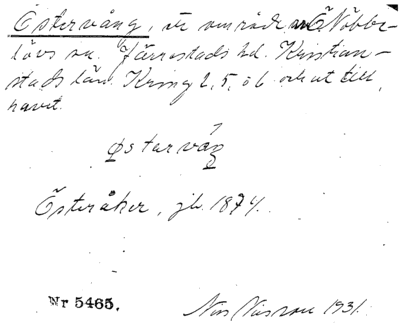 Östervång, är område Ö Nöbbe-
lövs sn. Järrestads hd. Kristian-
stads län. Kring 2, 5, o 6 och ut till
havet.
Østarváng
Österåker, jb. 1874.
Nr 5465.
1931.